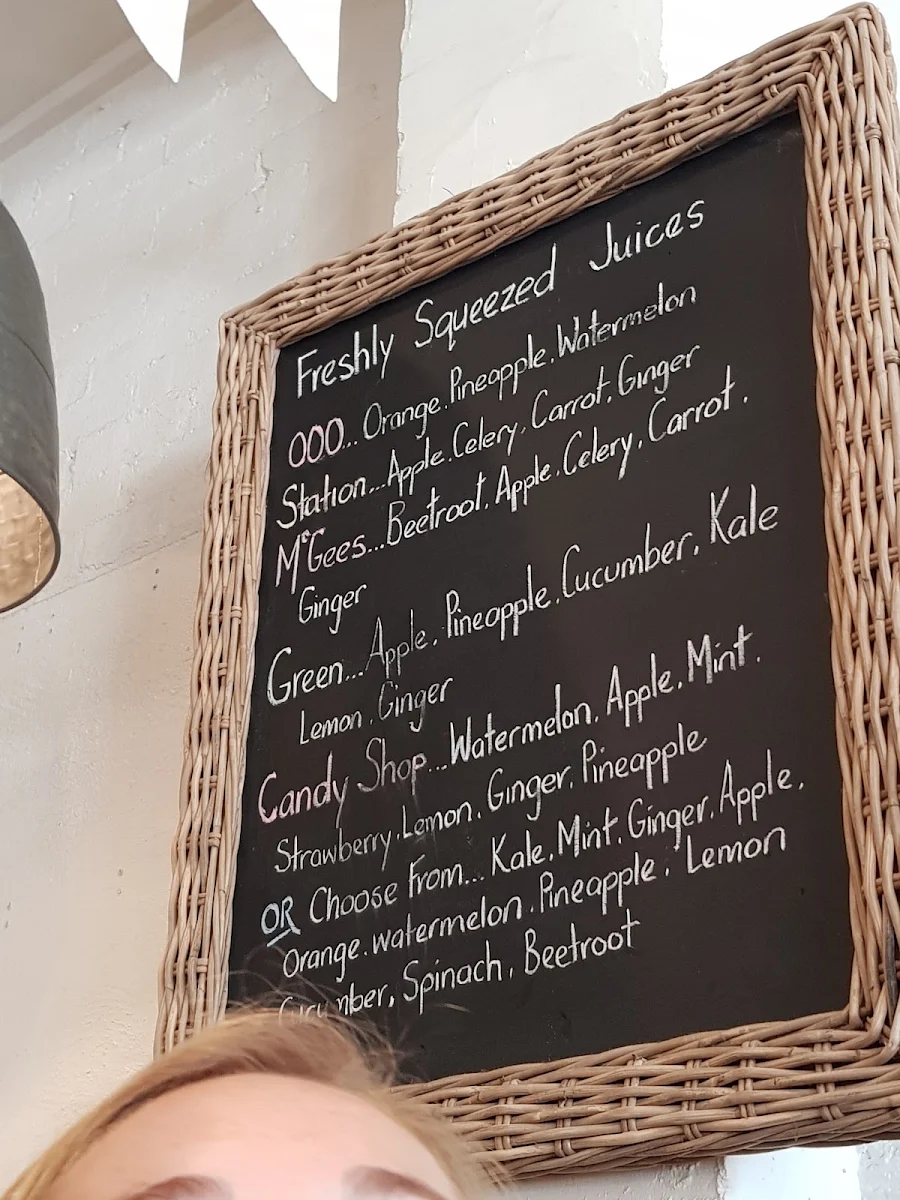 Freshly Squeezed Juices
OOO.. Orange. Pineapple. Watermelon
Station... Apple. Celery, Carrot. Ginger
McGees... Beetroot. Apple. Celery, Carrot.
Ginger
Green... Apple. Pineapple. Cucumber. Kale
Lemon. Ginger
Candy Shop... Watermelon. Apple. Mint.
Strawberry. Lemon. Ginger. Pineapple
OR Choose From... Kale. Mint. Ginger. Apple.
Orange. watermelon. Pineapple. Lemon
Cucumber, Spinach. Beetroot